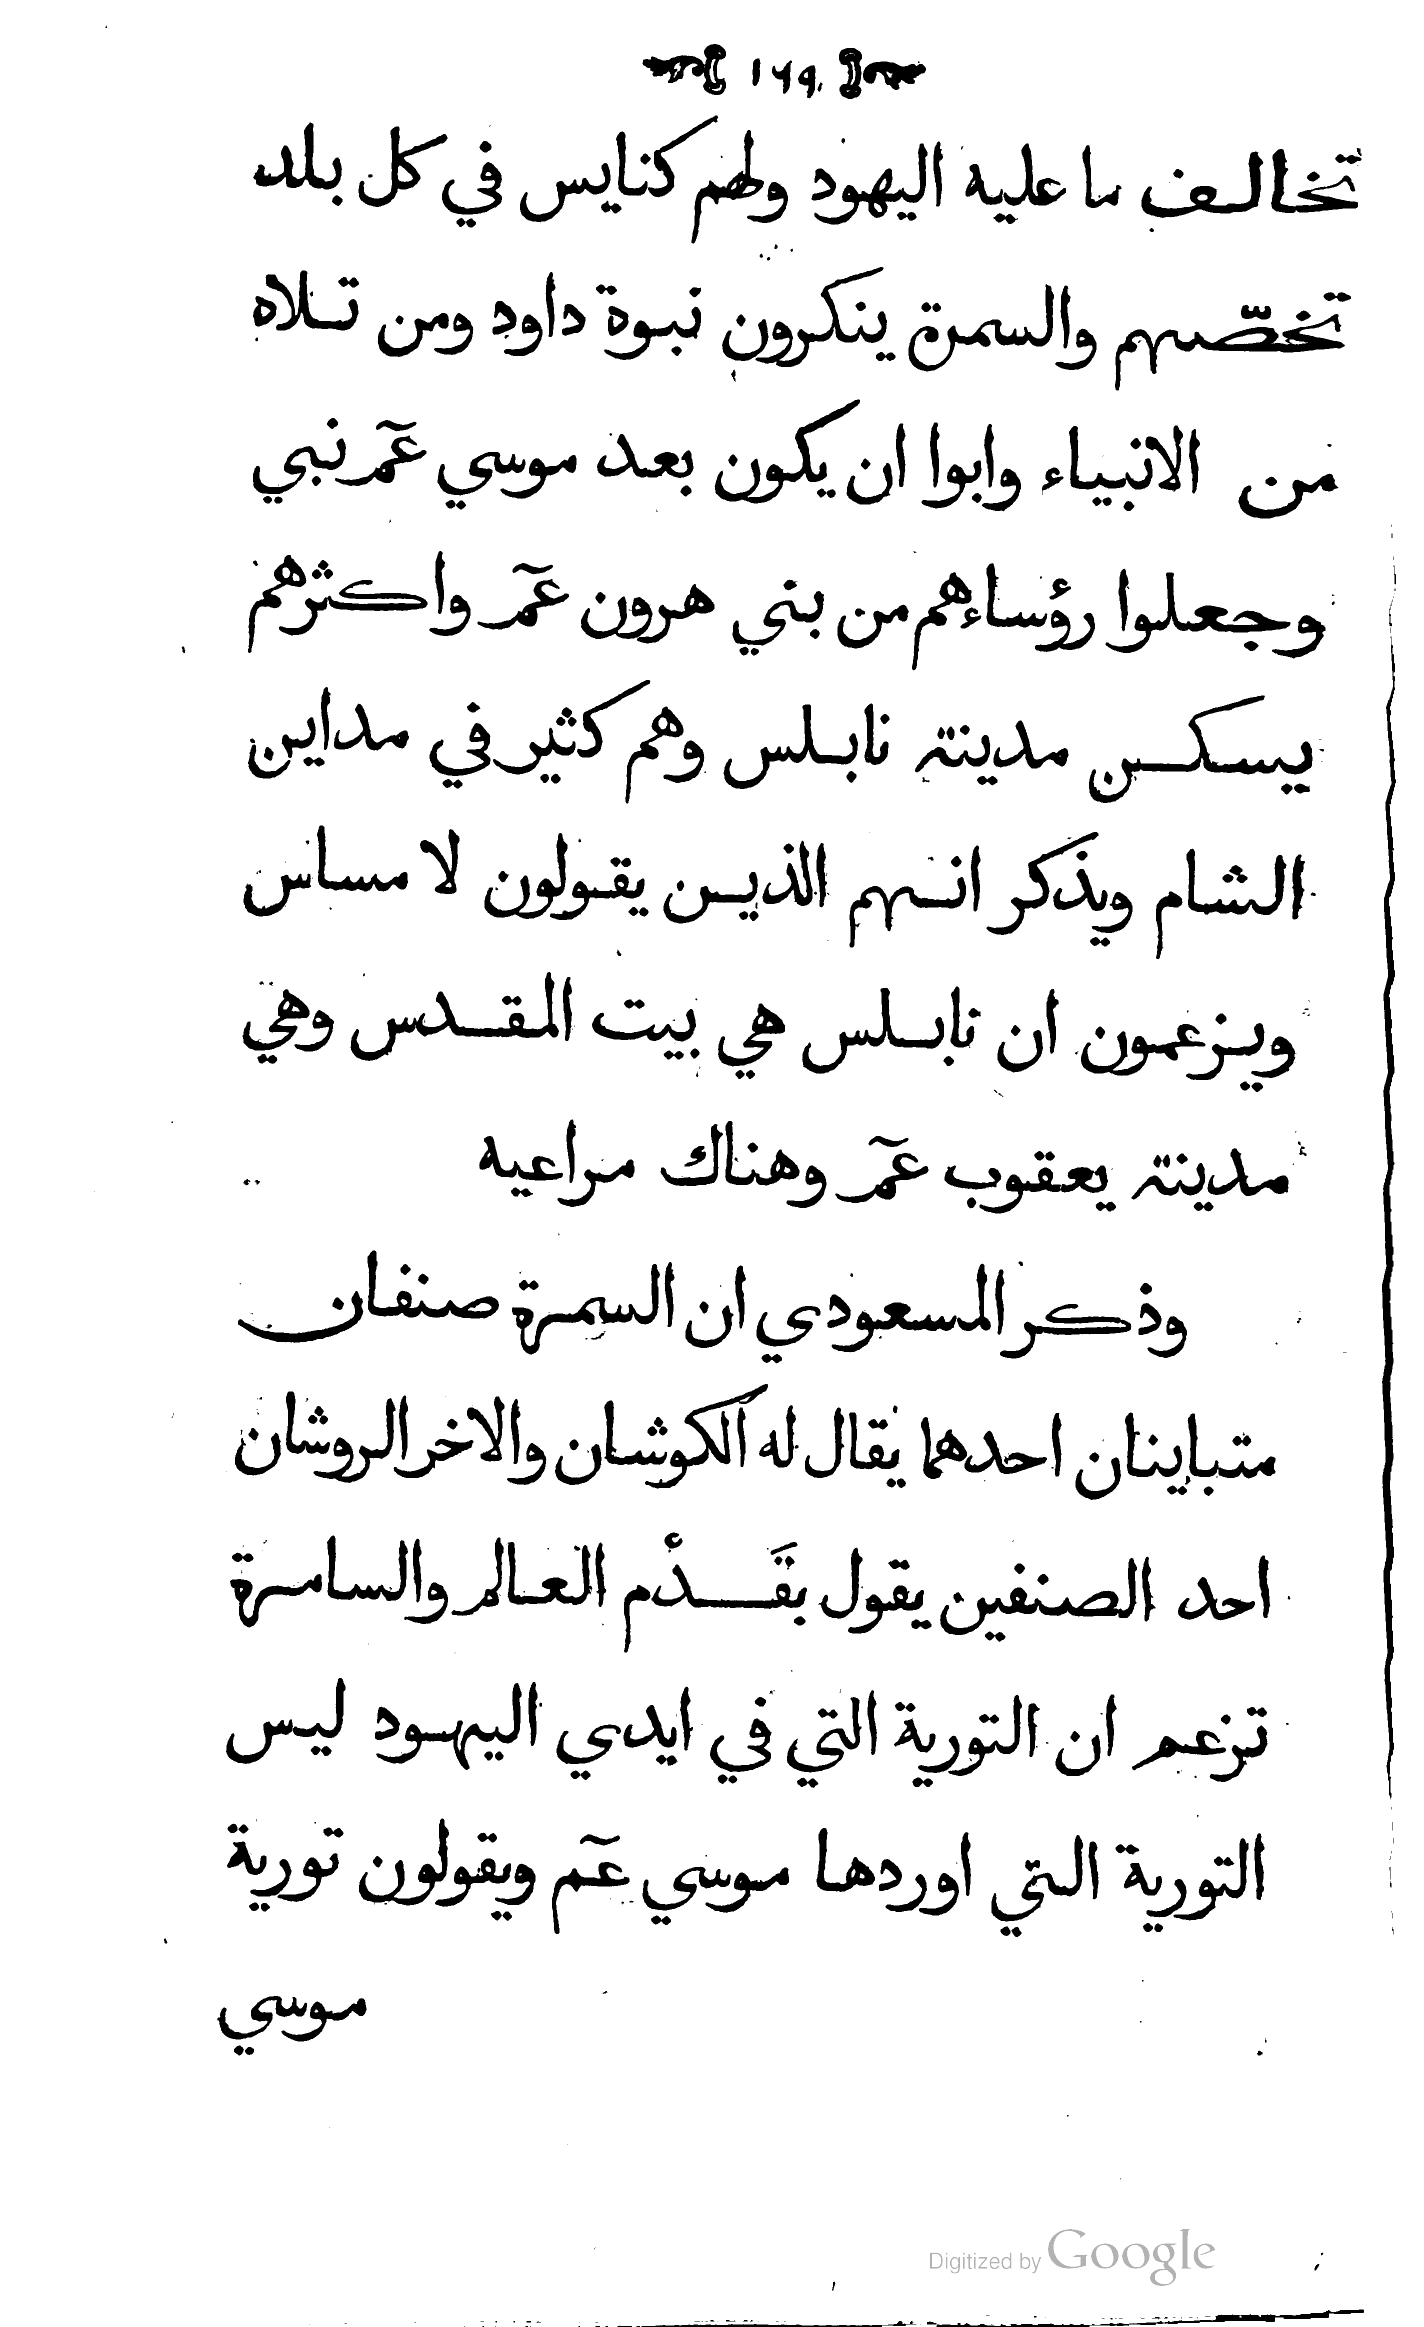 ١٦٩
تخالف ما عليه اليهود ولهم كنايس في كل بلد
تخصّهم والسمرة ينكرون نبوة داود ومن تلاه
من الانبياء وابوا ان يكون بعد موسي عمٓ نبي
وجعلوا رؤساءهم من بني هرون عمٓ واكثرهم
يسكن مدينة نابلس وهم كثير في مداين
الشام ويذكر انهم الذين يقولون لا مساس
ويزعمون ان نابلس هي بيت المقدس وهي
مدينة يعقوب عمٓ وهناك مراعيه
وذكر المسعودي ان السمرة صنفان
متباينان احدهما يقال له الكوشان والاخر الروشان
احد الصنفين يقول بقَدْم العالم والسامرة
تزعم ان التورية التي في ايدي اليهود ليس
التورية التي اوردها موسي عمٓ ويقولون تورية
موسي
Digitized by Google